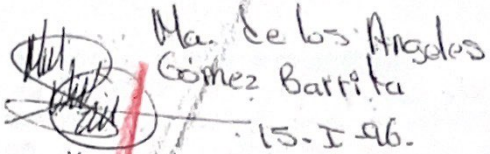 Ma. de los Angeles
Gómez Barrita
15-I-96.